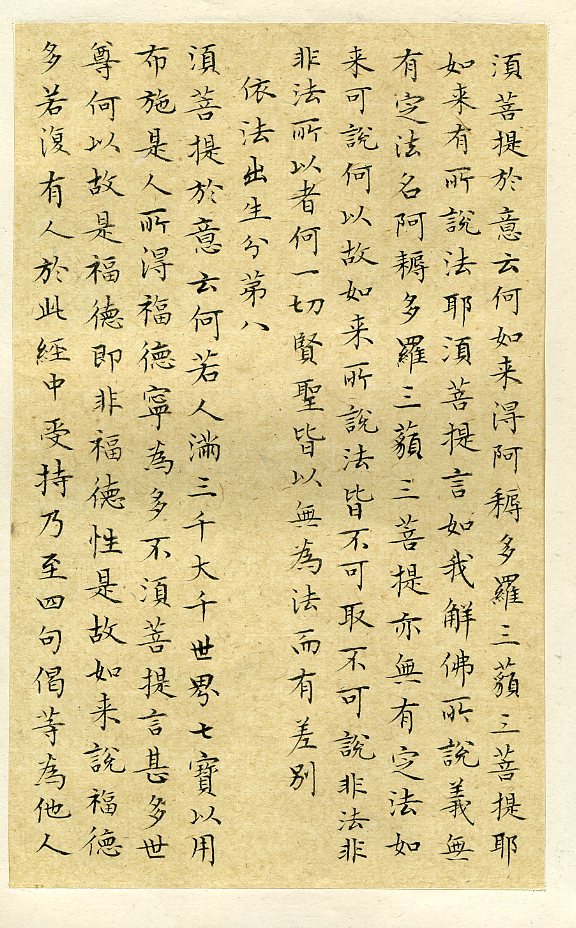 須菩提於意云何如来得阿耨多羅三藐三菩提耶
如来有所說法耶須菩提言如我解佛所說義無
有定法名阿耨多羅三藐三菩提亦無有定法如
来可說何以故如来所說法皆不可取不可說非法非
非法所以者何一切賢聖皆以無為法而有差别
依法出生分第八
須菩提於意云何若人滿三千大千世界七寶以用
布施是人所得福德寧為多不須菩提言甚多世
尊何以故是福德即非福德性是故如来說福德
多若復有人於此經中受持乃至四句偈等為他人